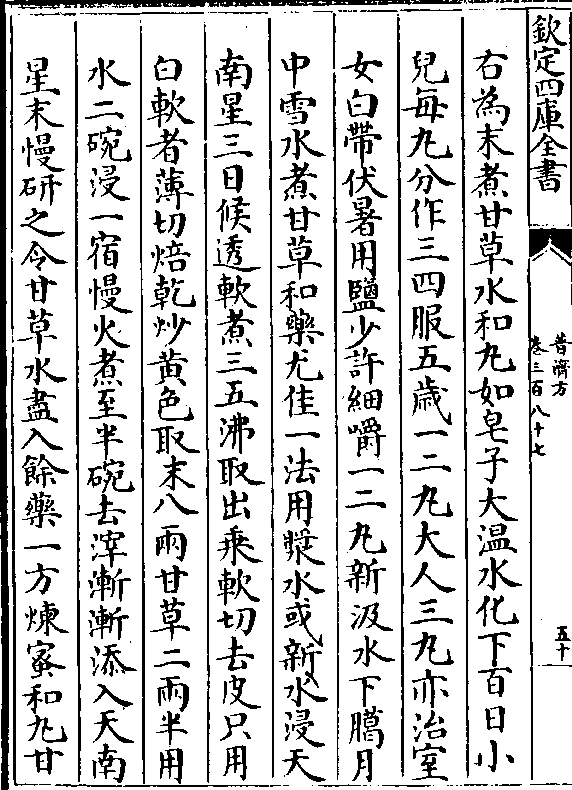 欽定四庫全書
普濟方
卷三百八十七
五十
右為末煮甘草水和丸如皂子大温水化下百日小
兒每丸分作三四服五歲一二丸大人三丸亦治室
女白帶伏暑用鹽少許細嚼一二丸新汲水下臈月
中雪水煮甘草和藥尤佳一法用漿水或新水浸天
南星三日候透軟煮三五沸取出乗軟切去皮只用
白軟者薄切焙乾炒黄色取末八兩甘草二兩半用
水二碗浸一宿慢火煮至半碗去滓漸漸添入天南
星末慢研之令甘草水盡入餘藥一方煉蜜和丸甘